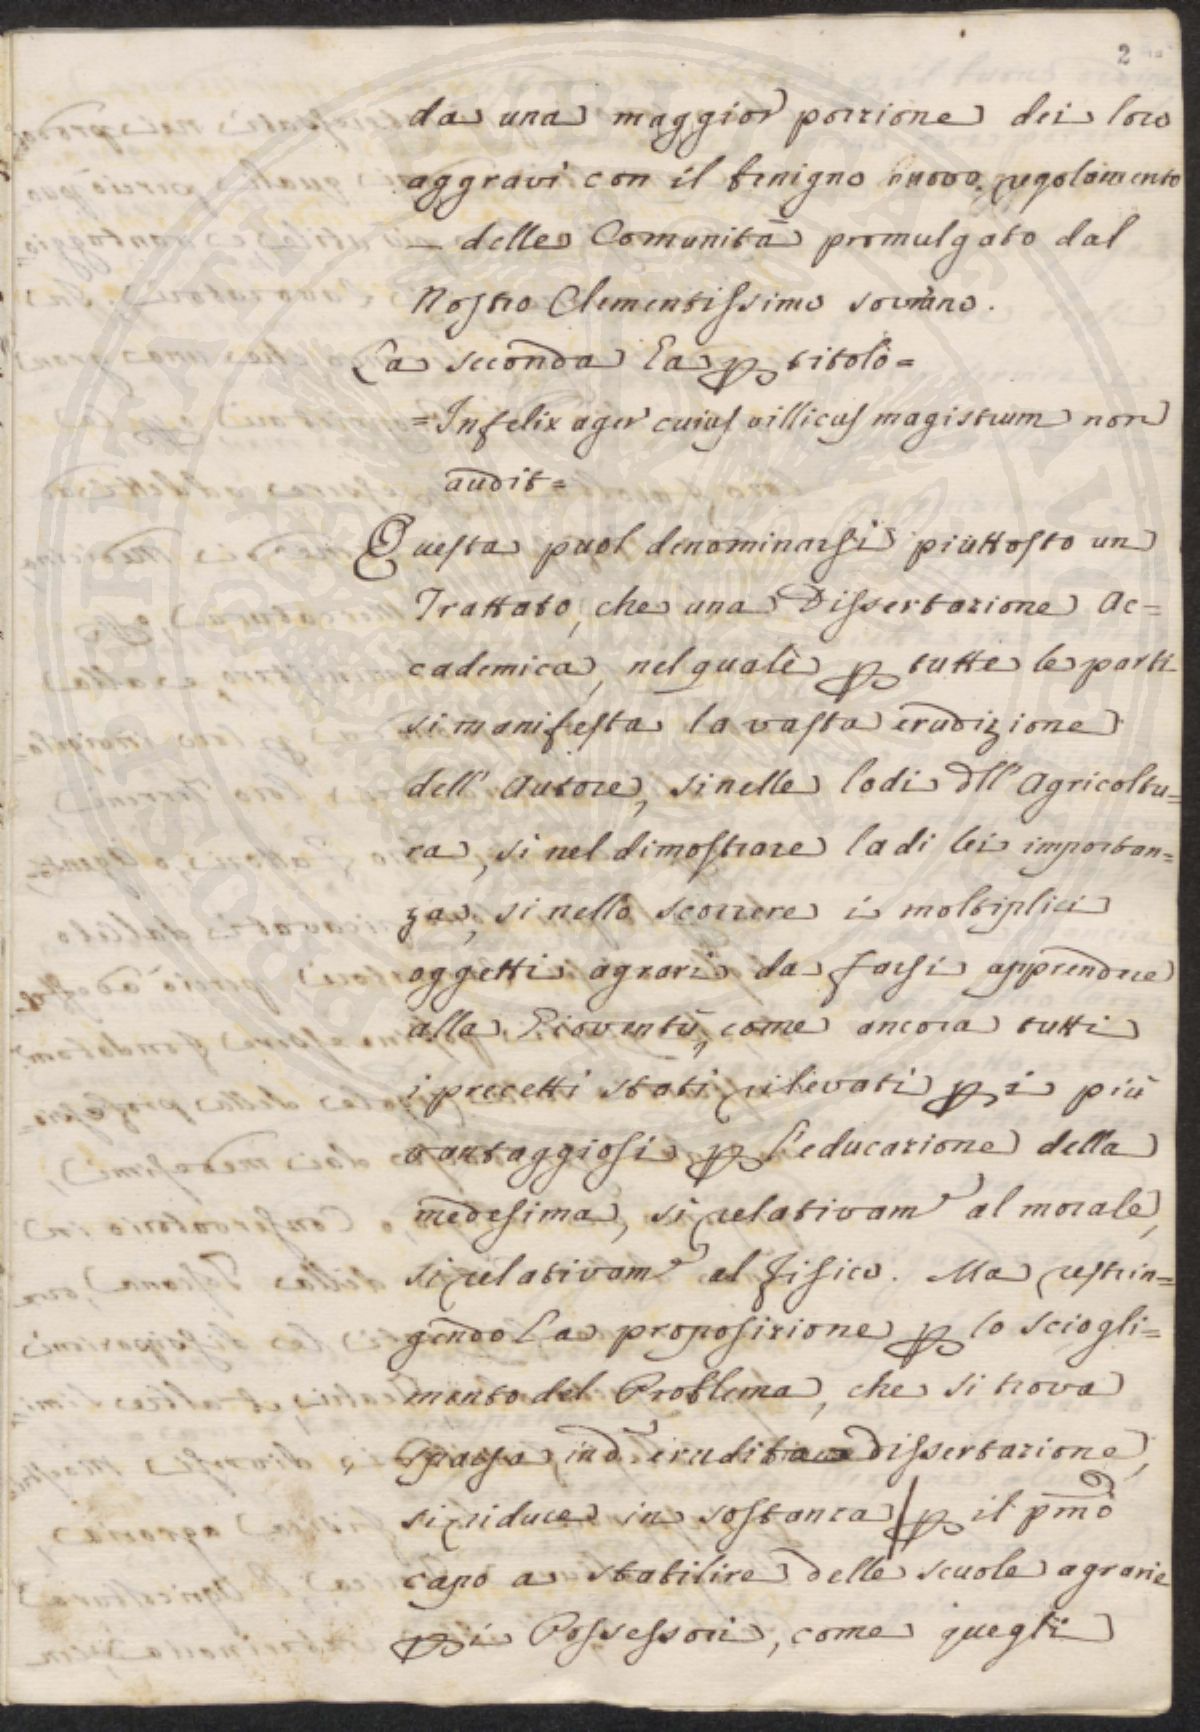 2
da una maggior porzione dei loro
aggravi con il benigno nuovo regolamento
delle Comunità promulgato dal
Nostro Clementissimo sovrano.
La seconda ha p titolo =
= Infelix ager cuius villicus magistrum non
audit =
Questa puol denominarsi piuttosto un
Trattato, che una Dissertazione Ac=
cademica, nel quale p tutte le parti
si manifesta la vasta erudizione
dell' Autore, si nelle lodi dll' Agricoltu=
ra, si nel dimostrare la di lei importan=
za, si nello scorrere i moltiplici
oggetti agrari da farsi apprendere
alla Gioventù, come ancora tutti
i precetti stati rilevati p i più
vantaggiosi p l'educazione della
medesima, si relativam.e al morale,
si relativam.e al fisico. Ma restrin=
gendo la proposizione p lo sciogli=
mento del Problema, che si trova
sparsa in d.a erudita dissertazione,
si riduce in sostanza p il pmo
capo a stabilire delle scuole agrarie
p i Possessori, come quegli